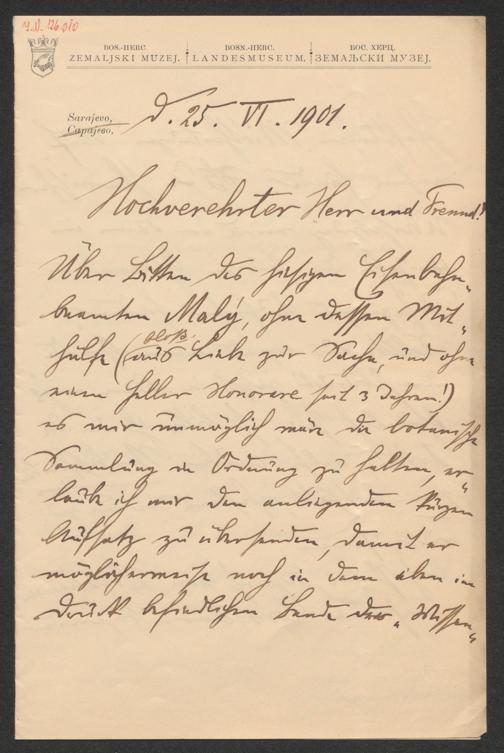 J. N. 126.010
BOS.-HERC. BOSN.-HERC. БОС. ХЕРЦ.
ZEMALJSKI MUZEJ. LANDESMUSEUM. ЗЕМАЉСКИ МУЗЕЈ.
Sarajevo, d. 25. VI. 1901.
Сарајево,
Hochverehrter Herr und Freund!
Über Bitten des hiesigen Eisenbahn„
beamten Malý, ohne dessen Mit„
hülfe (bloß aus Liebe zur Sache, und ohne
einen Heller Honorare seit 3 Jahren!)
es mir unmöglich wäre die botanische
Sammlung in Ordnung zu halten, er„
laube ich mir den anliegenden kurzen
Aufsatz zu übersenden, damit er
möglicherweise noch in dem eben im
Druck befindlichen Bande der „Wissen„